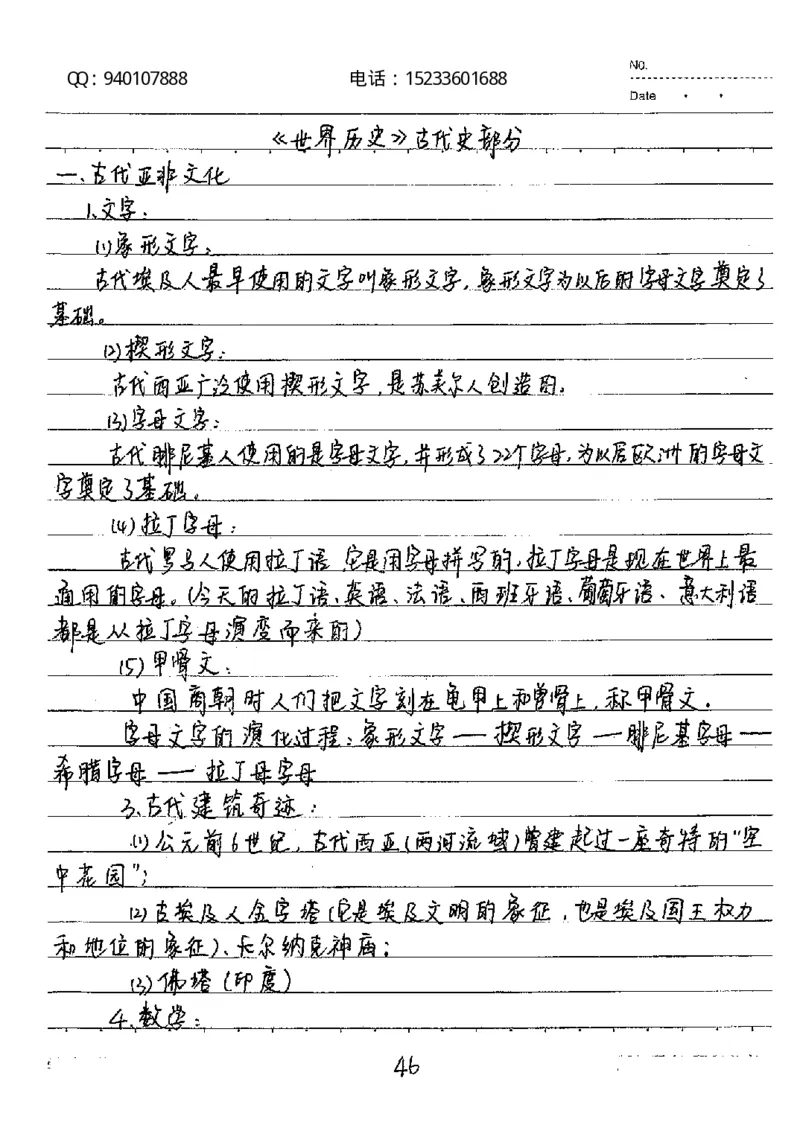 QQ：940107888 电话：15233601688 No.
Date
《世界历史》古代史部分
一、古代亚非文化
1.文字：
(1)象形文字：
古代埃及人最早使用的文字叫象形文字，象形文字为以后的字母文字奠定了
基础。
(2)楔形文字：
古代西亚广泛使用楔形文字，是苏美尔人创造的。
(3)字母文字：
古代腓尼基人使用的是字母文字，并形成了22个字母，为以后欧洲的字母文
字奠定了基础。
(4)拉丁字母：
古代罗马人使用拉丁语 它是用字母拼写的，拉丁字母是现在世界上最
通用的字母。(今天的拉丁语、英语、法语、西班牙语、葡萄牙语、意大利语
都是从拉丁字母演变而来的)
(5)甲骨文：
中国商朝时人们把文字刻在龟甲上和兽骨上，称甲骨文。
字母文字的演化过程：象形文字——楔形文字——腓尼基字母——
希腊字母——拉丁母字母
3、古代建筑奇迹：
(1)公元前6世纪，古代西亚(两河流域)曾建起过一座奇特的"空
中花园"；
(2)古埃及人金字塔(它是埃及文明的象征，也是埃及国王权力
和地位的象征)、卡尔纳克神庙；
(3)佛塔(印度)
4、数学：
46